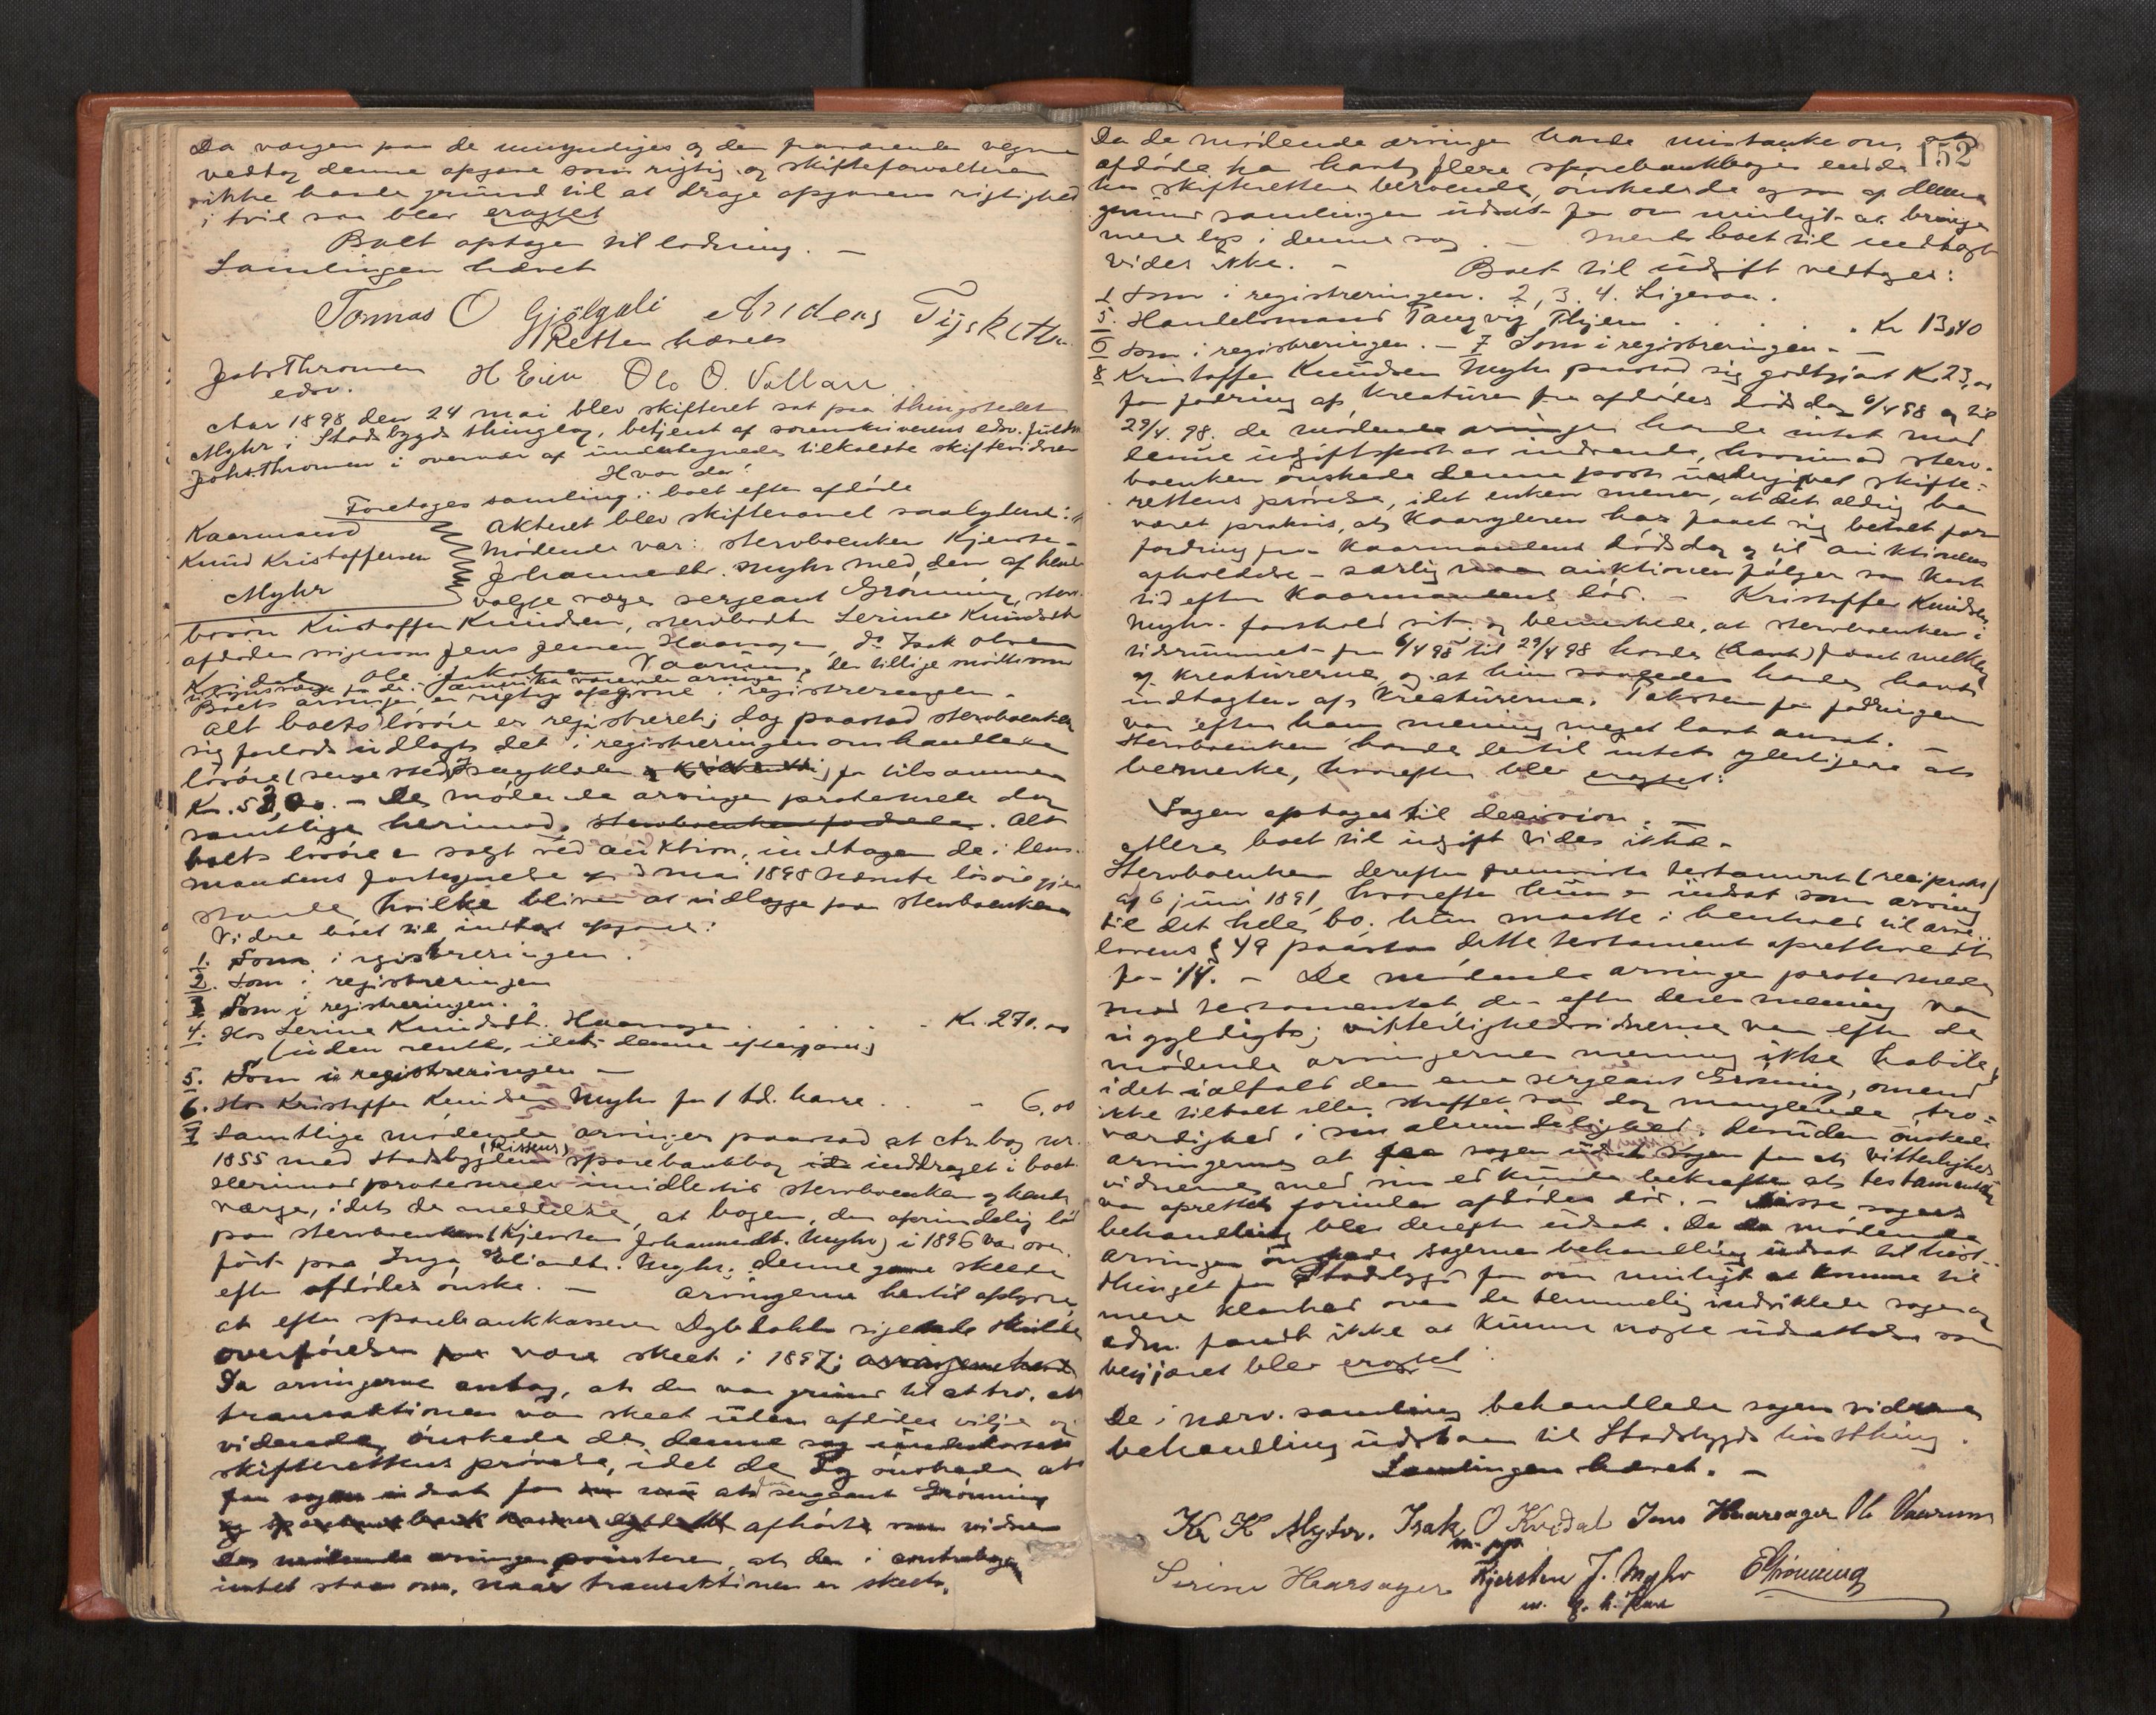 Da vergen paa de umyndiges og den fraværendes vegne
vedtog denne opgave som rigtig og skifteforvalteren
ikke havde grund til at drage opgavens rigtighed
i tvil saa blev eragtet
Boet optages til lodning. —
Samlingen hævet
Tomas O Gjölgali Andeas Tijsketh
Retten hævet
Johs Thronæs H Eien Ole O. Vollan
edsv.
Aar 1898 den 24 mai blev skifteret sat paa thingstedet
Myhr i Stadsbygds thinglag, betjent af sorenskriverens edsv. fuldm.
Johs Thronæs i overvær af undertegnede tilkaldte skiftevidner
Hvor da:
Foretoges samling i boet efter afdöde
Kaarmand
Knud Kristoffersen
Myhr
Akteret blev skiftevarsel saalydende:
Mödende var: stervboenken Kjersten
Johannesdtr. Myhr med den af hende
valgte verge sergeant Grönning, sterv-
bosön Kristoffer Knudsen, stervbodtr Serine Knudsdtr
afdödes svigersön Jens Jensen Haarsager, do Isak Olsen
Kvidal, Ole Jakobsen Vaarum, der tillige mötte som
verge for de i Amerika værende arvinger.
Boets arvinger er rigtig opgivne i registreringen.
Alt boets lösöre er registreret; dog paastod stervboenken
sig forlods udlagt det i registreringen omhandlede
lösöre (sengested sengklæder) for tilsammen
Kr. 58,00. — De mödende arvinger protesterede dog
samtlige herimod. stervboenken fordrede. Alt
boets lösöre er solgt ved auktion, undtagen de i lens-
mandens fortegnelse af 3 mai 1898 nævnte lösöregjen-
stande, hvilke bliver at udlægge paa stervboenken
Videre boet til indtægt opgaves:
1. Som i registreringen.
2. Som i registreringen
3 Som i registreringen.
4. Hos Serine Knudsdtr. Haarsager . . . . Kr. 270.00
(uden rente, idet denne eftergaves)
5. Som i registreringen —
6. Hos Kristoffer Knudsen Myhr for 1 td. havre . . - 6,00
7 Samtlige mödende arvinger paastod at Ctr. bog nr.
1855 med Stadsbygdens (Rissens) sparebankbog inddraget i boet
Herimod protesterede imidlertid stervboenken og hendes
verge, idet de meddelte, at bogen, der oprindelig löd
paa stervboenken (Kjersten Johannesdt. Myhr) i 1896 var over-
fört paa Inga Eliasdtr. Myhr; denne skede
efter afdödes önske. — Arvingerne hertil oplyste,
at efter sparebankkasserer Dybdahls sigende skulde
overförelsen være skeet i 1897; arvingerne havde
Da arvingerne antog, at der var grund til at tro, at
transaktionen var skeet uden afdödes vilje og
vidende, önskede de denne sag underkastet
skifterettens prövelse, idet de dog önskede at
faa sagen udsat for at sergeant Grönning
afhörtes som vidne
De mödende arvinger pointerer, at der i contrabogen
intet staar om, naar transaktionen er skeet.
152
Da de mödende arvinger havde mistanke om, at
afdöde har havt flere sparebankböger end de
hos skifteretten beroende, önskede de ogsaa af denne
grund samlingen udsat for om muligt at bringe
mere lys i denne sag. — Mere boet til indtægt
vides ikke. — Boet til udgift vedtoges:
1 Som i registreringen. 2, 3. 4. Ligesaa.
5. Handelsmand Tangvig Thjem . . . . . Kr 13,40
6 Som i registreringen. — 7 Som i registreringen. —
8 Kristoffer Knudsen Myhr paastod sig godtgjort Kr. 23,00
for fodring af kreaturer fra afdödes dödsdag 6/4 98 og til
29/4. 98. de mödende arvinger havde intet mod
denne udgiftspost at indvende, hvorimod sterv-
boenken önskede denne post undergivet skifte-
rettens prövelse, idet enken mener, at det aldrig har
været praksis, at kaaryderen har faaet sig betalt for
fordring fra kaarmandens dödsdag og til auktionens
afholdelse — særlig naar auktionen fölger saa kort
tid efter kaarmandens död. — Kristoffer Knudsen
Myhr fastholdt sit og bemerkede, at stervboenken i
tidsrummet fra 6/4 98 til 29/4 98 havde (havt) faaet melken
af kreaturerne og at hun saaledes havde havt
indtægten af kreaturerne. Taksten for fodringen
var efter hans mening meget lavt ansat. —
Stervboenken havde hertil intet yderligere at
bemerke, hvorefter blev eragtet:
Sagen optages til decision. —
Mere boet til udgift vides ikke.
Stervboenken derefter fremviste testament (reciprokt)
af 6 juni 1891, hvorefter hun er indsat som arving
til det hele bo. hun maatte i henhold til arve-
lovens § 49 paastaa dette testament opretholdt
for 1/4. — De mödende arvinger protesterede
mod testamentet der efter deres mening var
ugyldigt; vitterlighedsvidnerne var efter de
mödende arvingernes mening ikke habile,
idet ialfald den ene sergeant Grönning, omend
ikke tiltalt eller straffet saa dog manglende tro-
værdighed i sin almindelighed. Desuden önskede
arvingerne at faa sagen udsat for at vitterligheds-
vidnerne med sin ed kunde bekræfte at testamentet
var oprettet forinden afdödes död. — Disse sagers
behandling blev derefter udsat. Da de mödende
arvinger önskede sagernes behandling udsat til höst-
thinget for Stadsbygd for om muligt at komme til
mere klarhed over de temmelig indviklede sager og
adm. fandt ikke at kunne nægte udsættelse som
begjæret blev eragtet:
De i nærv. samling behandlede sagers videre
behandling udstaar til Stadsbygds hösthing.
Samlingen hævet. —
Kr K Myhr. Isak O Kvidal Jens Haarsager Ole Vaarum
m. p. p.
Serine Haarsager Kjersten J. Myhr EGrönning
m. p. h. Pen